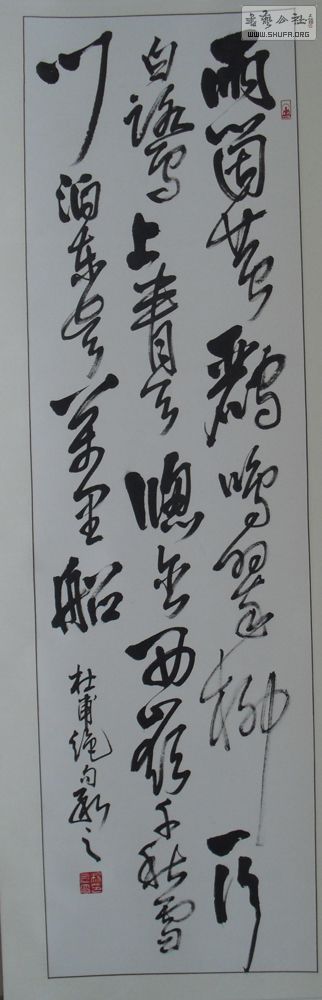 書藝公社
WWW.SHUFA.ORG
兩箇黃鸝鳴翠柳一行
白鷺上青天窓含西嶺千秋雪
门泊東吳萬里船
杜甫绝句